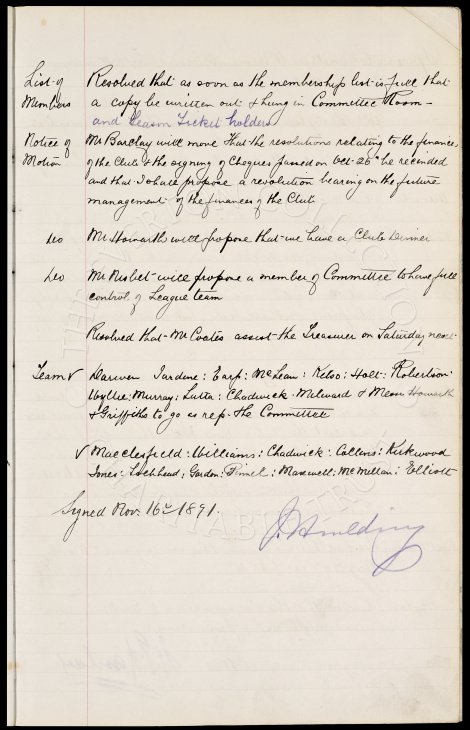 List of Resolved that as soon as the membership list is full that
Members a copy be written out & hung in Committee Room -
and Season Ticket holders
Notice of Mr Barclay will move that the resolutions relating to the finances
Motion of the Club & the signing of Cheques passed on Oct 26th be recinded
and that I shall propose a resolution bearing on the future
management of the finances of the Club
Do Mr Howarth will propose that we have a Club Dinner
Do Mr Nisbet will propose a member of Committee to have full
control of League team
Resolved that Mr Coates assist the Treasurer on Saturday next
Team v Darwen Jardine: Earp: McLean: Kelso: Holt: Robertson:
Wyllie: Murray: Latta: Chadwick: Milward & Messrs Howarth
& Griffiths to go as rep. the Committee
v Macclesfield: Williams: Chadwick: Collins: Kirkwood
Jones: Lochhead: Gordon: Pinnell: Maxwell: McMillan: Elliott
Signed Nov. 16th 1891.
J. Houlding
THE EVERTON COLLECTION
CHARITABLE TRUST